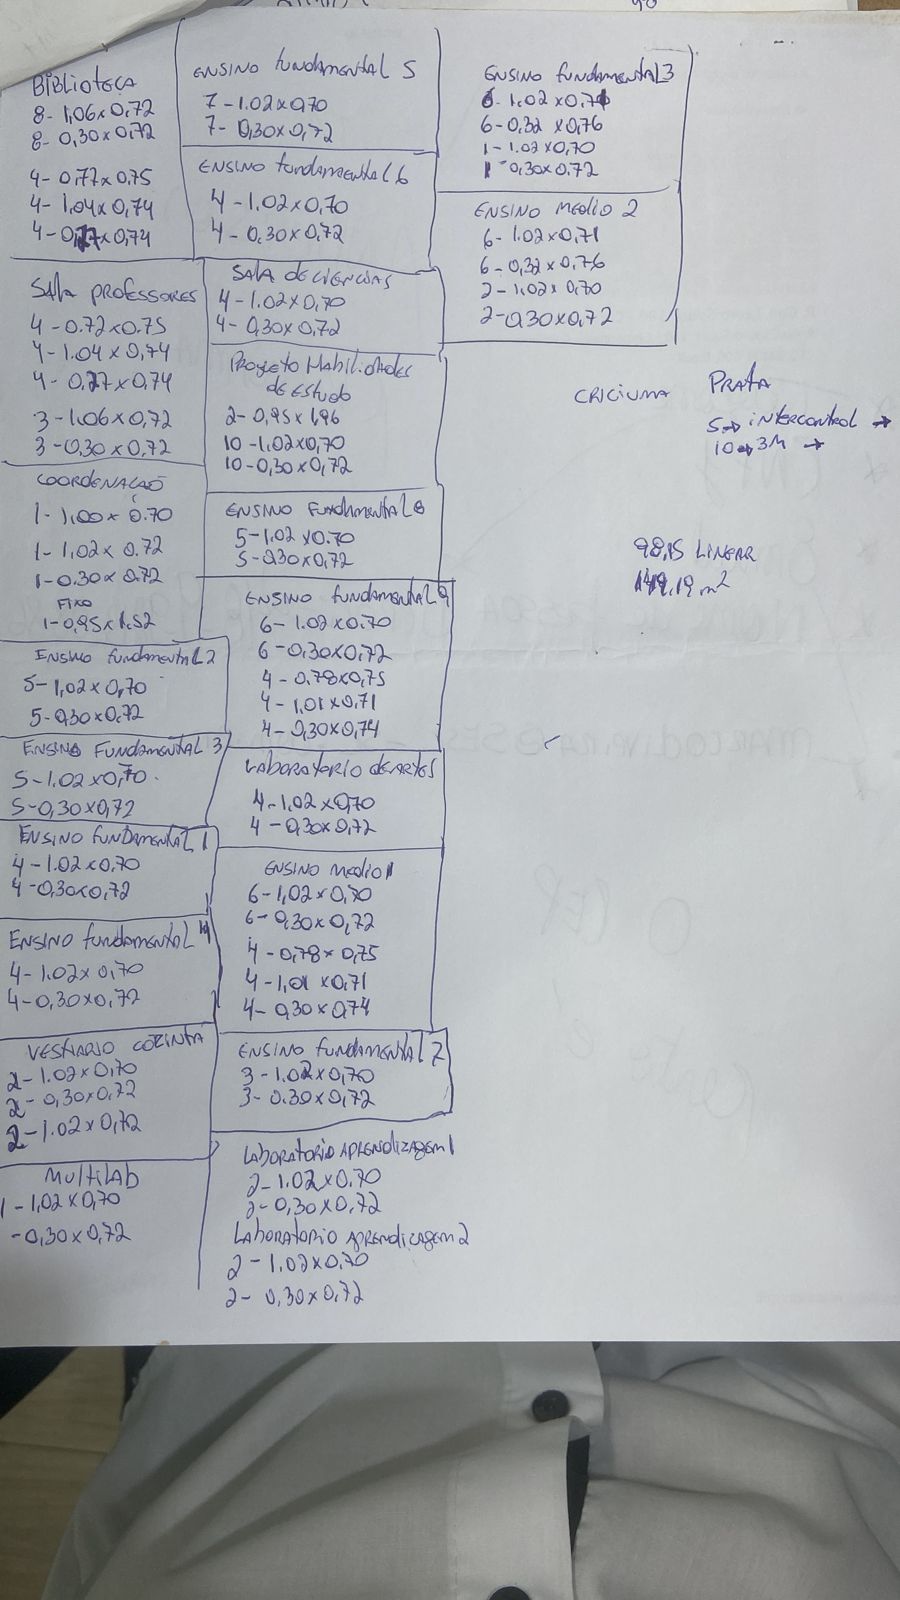 BIBLIOTECA
8-1,06x0,72
8-0,30x0,72
4-0,77x0,75
4-1,04x0,74
4-0,77x0,74
SALA PROFESSORES
4-0.72x0.75
4-1.04x0,74
4-0,77x0.74
3-1,06x0,72
3-0,30x0,72
COORDENAÇÃO
1-1,00x0.70
1-1,02x0.72
1-0.30x0.72
FIXO
1-0,95x1.52
ENSINO fundamental 2
5-1,02x0,70
5-0,30x0,72
ENSINO FUNDAMENTAL 3
5-1.02x0,70
5-0,30x0,72
ENSINO FUNDAMENTAL 1
4-1.02x0,70
4-0,30x0,72
ENSINO fundamental 4
4-1.02x0,70
4-0,30x0,72
VESTIARIO COZINHA
2-1.02x0,70
2-0,30x0,72
2-1.02x0,72
MULTILAB
1-1,02x0,70
-0,30x0,72
ENSINO fundamental 5
7-1.02x0,70
7-0,30x0,72
ENSINO fundamental 6
4-1.02x0,70
4-0,30x0,72
SALA DE CIÊNCIAS
4-1.02x0,70
4-0,30x0,72
PROJETO HABILIDADES
DE ESTUDO
2-0,95x1,96
10-1,02x0,70
10-0,30x0,72
ENSINO FUNDAMENTAL 8
5-1.02x0.70
5-0,30x0,72
ENSINO fundamental 9
6-1.02x0,70
6-0,30x0,72
4-0.78x0,75
4-1,01x0,71
4-0,30x0,74
LABORATORIO DE ARTES
4-1.02x0,70
4-0,30x0,72
ENSINO MEDIO 1
6-1,02x0,70
6-0,30x0,72
4-0,78x0,75
4-1,01x0,71
4-0,30x0,74
ENSINO FUNDAMENTAL 7
3-1.02x0,70
3-0.30x0,72
LABORATORIO APRENDIZAGEM 1
2-1.02x0,70
2-0,30x0,72
LABORATORIO APRENDIZAGEM 2
2-1,02x0,70
2-0,30x0,72
ENSINO fundamental 3
6-1.02x0,71
6-0,32x0,76
1-1.02x0,70
1-0,30x0.72
ENSINO MEDIO 2
6-1.02x0,71
6-0,32x0,76
2-1,02x0,70
2-0,30x0,72
CRICIUMA PRATA
5→ INTERCONTROL →
10→3M →
98,15 LINEAR
149,19 m²